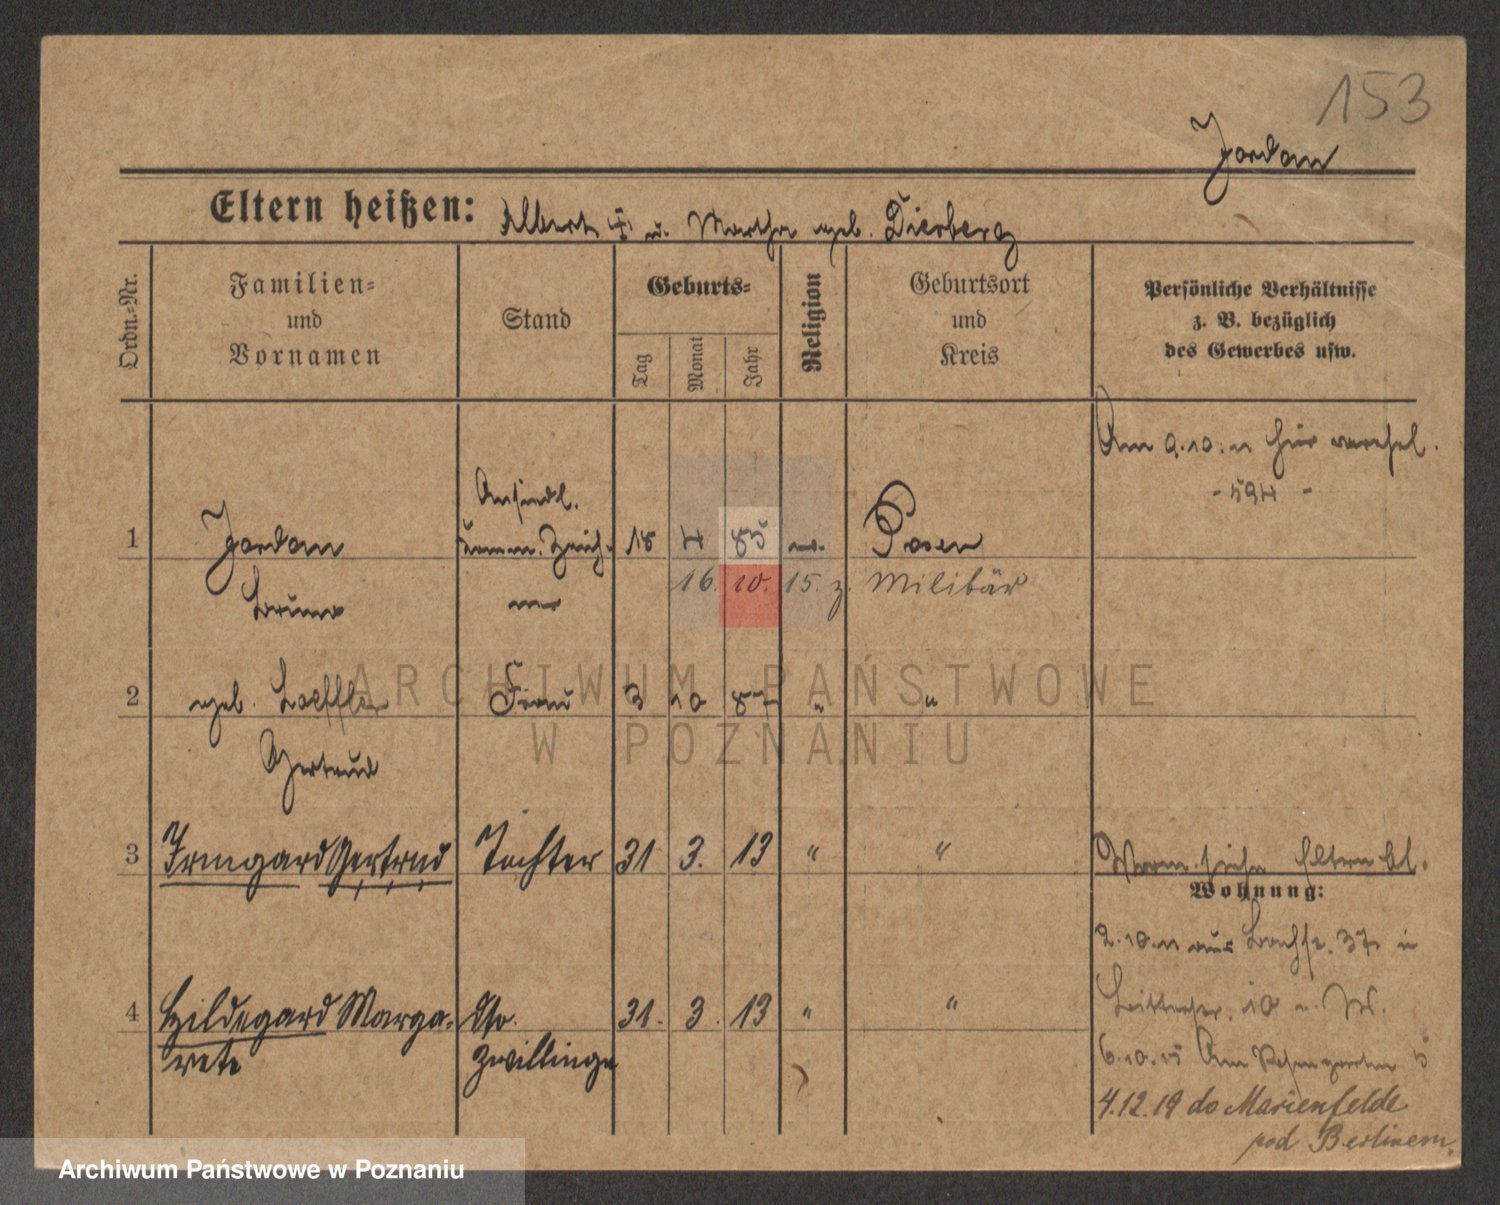 153
Jordan
Eltern heißen: Albert † u. Martha geb. Dierberg
Ordn.-Nr.
Familien-
und
Vornamen
Stand
Geburts-
Tag
Monat
Jahr
Religion
Geburtsort
und
Kreis
Persönliche Verhältnisse
z. B. bezüglich
des Gewerbes usw.
Am 9.10.11 hier verehel.
1 Jordan Ansiedl. 18 4 85 Posen
Bruno
Komm. Zeich-
ner
16. 10. 15. z. Militär
2 geb. Loeffler Frau 3 10 87 " "
Gertrud
3 Irmgard Gertrud Tochter 31 3. 13 " "
Wohnung:
2.10.11 aus 37
4 Hildegard Marga- dto. 31. 3. 13 " "
rete Zwillinge
6.10.15 Am Rosengarten 5
4.12.19 do Marienfelde
pod Berlinem
ARCHIWUM PAŃSTWOWE
W POZNANIU
Archiwum Państwowe w Poznaniu